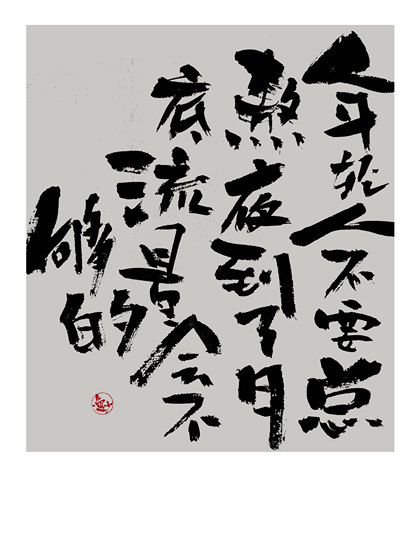 年轻人不要总
熬夜到了月
底流量会不
够的